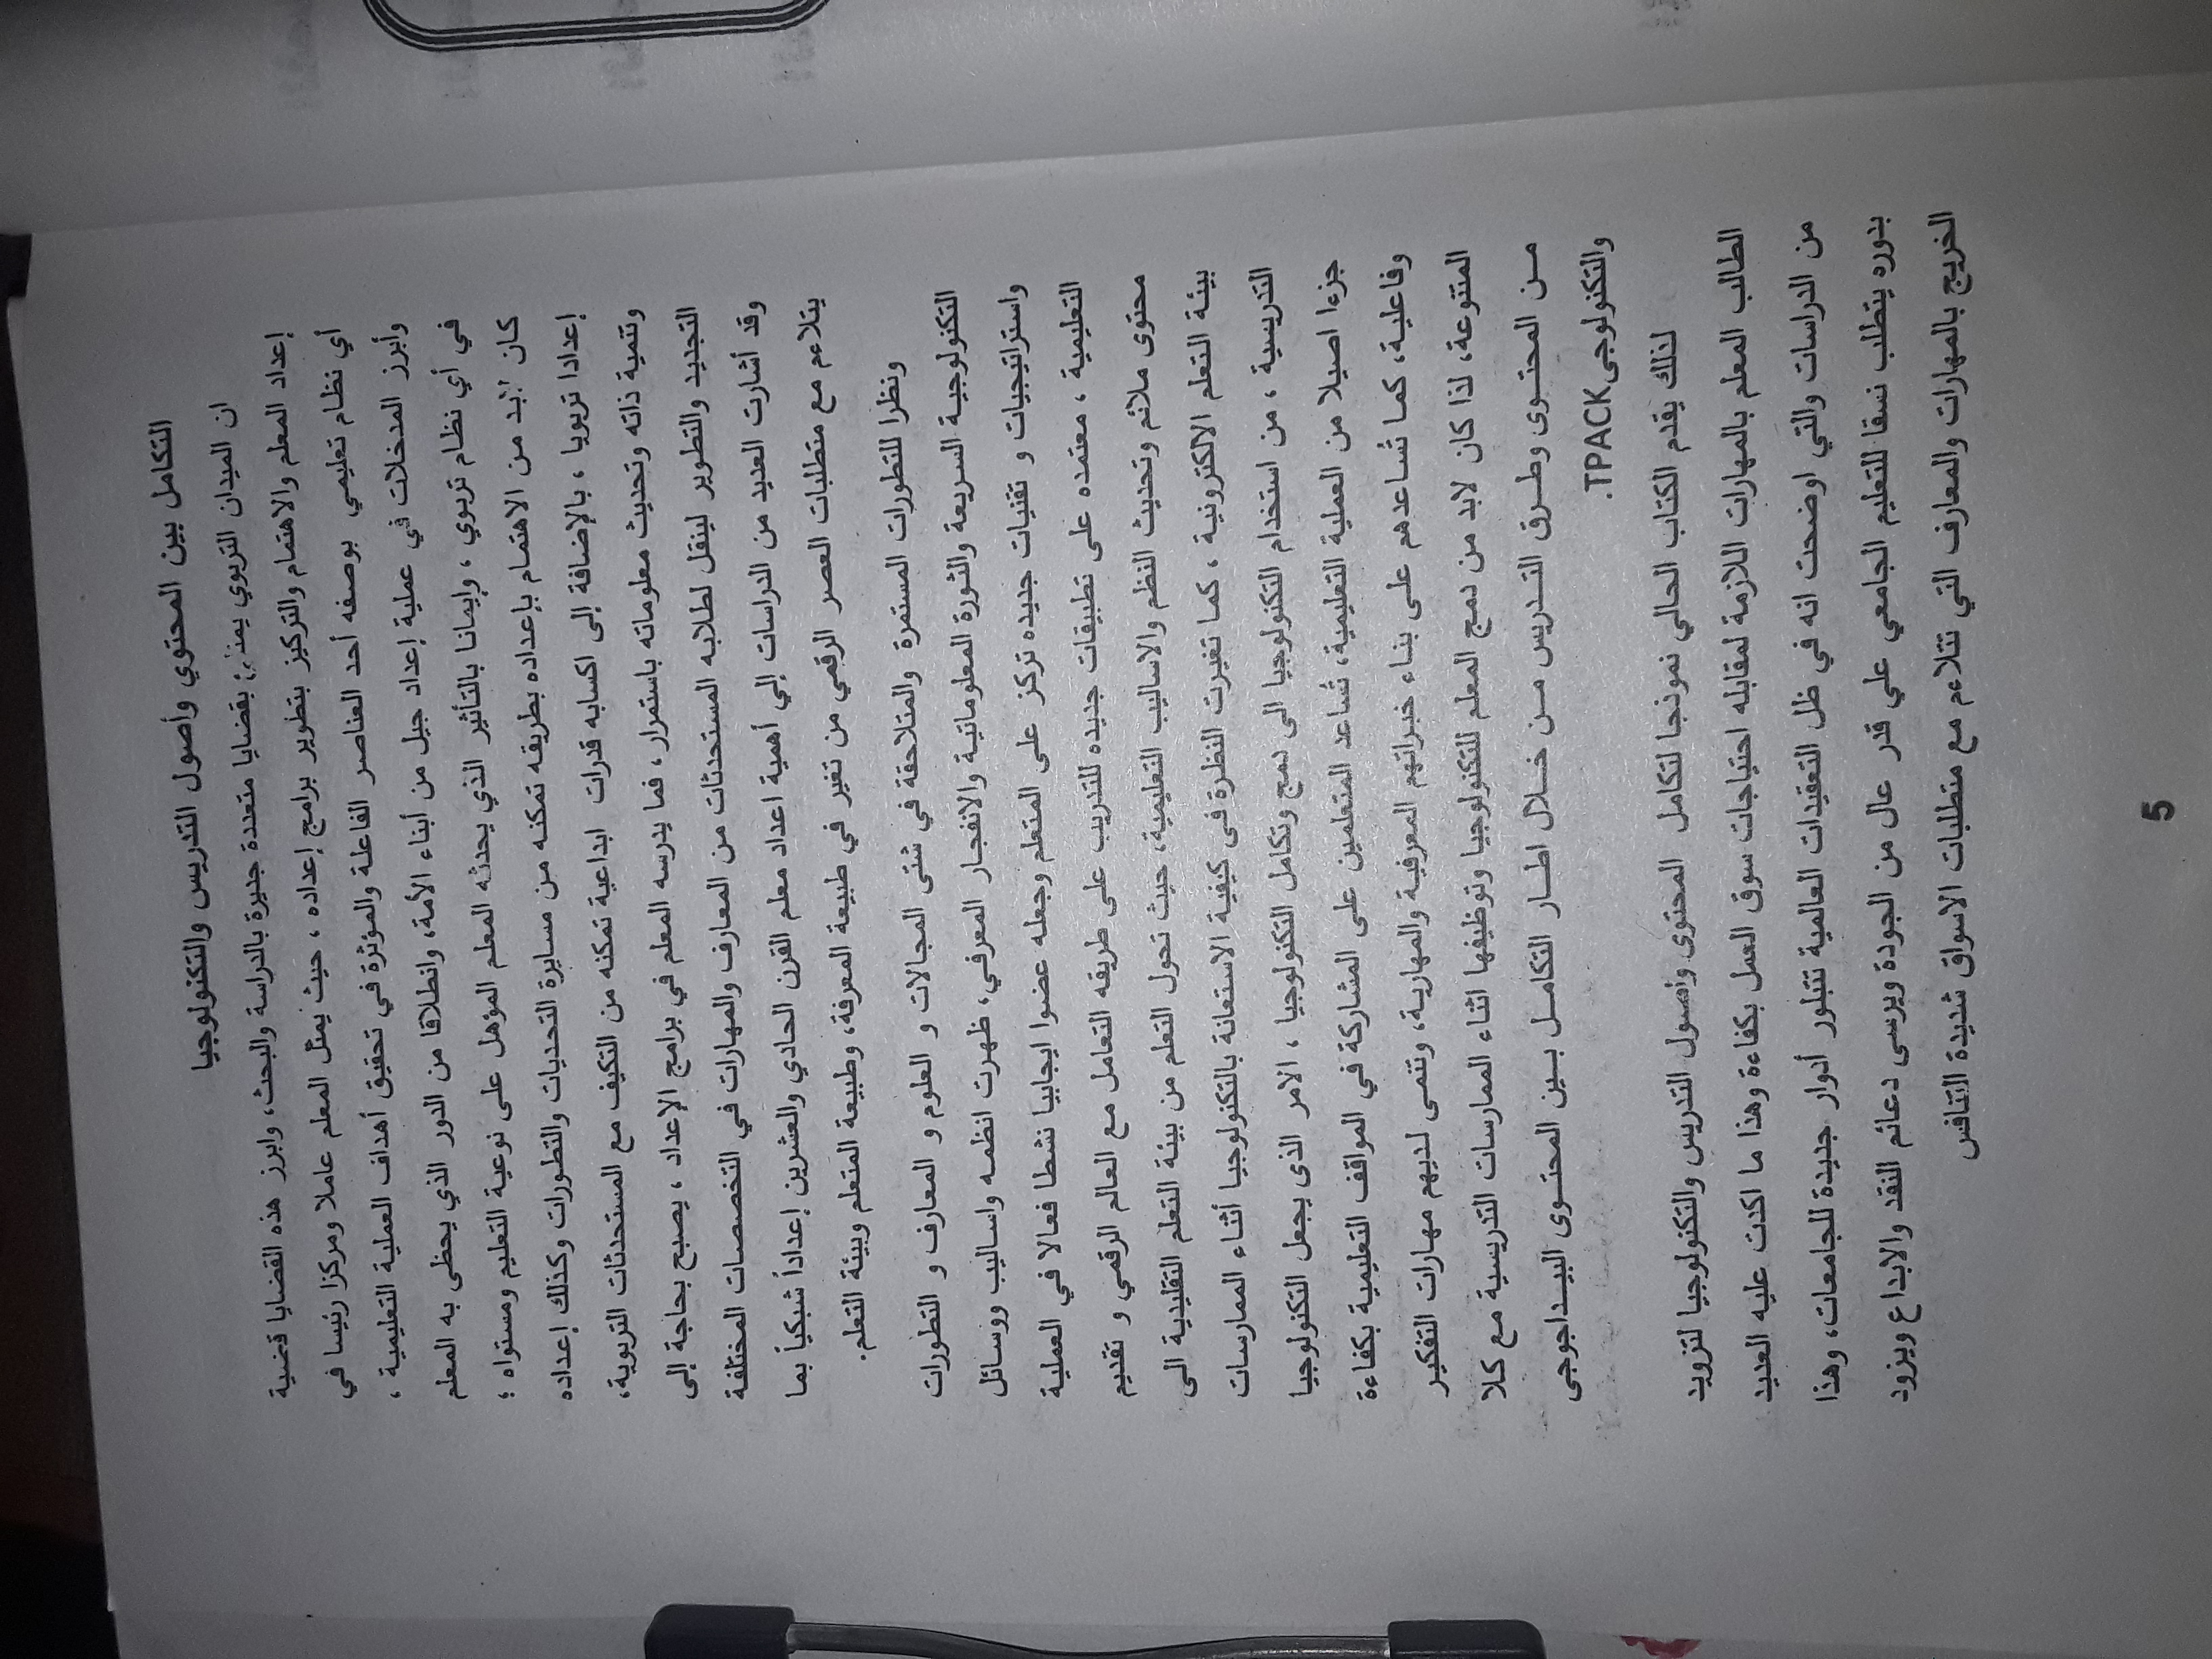 التكامل بين المحتوي وأصول التدريس والتكنولوجيا
ان الميدان التربوي بقضايا متعددة جديرة بالدراسة والبحث، وابرز هذه القضايا قضية
إعداد المعلم والاهتمام والتركيز بتطوير برامج إعداده ، حيث يمثل المعلم عاملا ومركزا رئيسا في
أي نظام تعليمي بوصفه أحد العناصر الفاعلة والمؤثرة في تحقيق أهداف العملية التعليمية ،
وأبرز المدخلات في عملية إعداد جيل من أبناء الأمة، وانطلاقا من الدور الذي يحظى به المعلم
في أي نظام تربوي ، وإيمانا بالتأثير الذي يحدثه المعلم المؤهل على نوعية التعليم ومستواه ؛
كان لابد من الاهتمام بإعداده بطريقه تمكنه من مسايرة التحديات والتطورات وكذلك إعداده
إعدادا تربويا ، بالإضافة إلى اكسابه قدرات ابداعية تمكنه من التكيف مع المستحدثات التربوية،
وتنمية ذاته وتحديث معلوماته باستمرار، فما يدرسه المعلم في برامج الإعداد ، يصبح بحاجة إلى
التجديد والتطوير لينقل لطلابه المستحدثات من المعارف والمهارات في التخصصات المختلفة
وقد أشارت العديد من الدراسات إلي أهمية اعداد معلم القرن الحادي والعشرين إعداداً شبكياً بما
يتلاءم مع متطلبات العصر الرقمي من تغير في طبيعة المعرفة، وطبيعة المتعلم وبيئة التعلم.
ونظرا للتطورات المستمرة والمتلاحقة في شتى المجالات و العلوم و المعارف و التطورات
التكنولوجية السريعة والثورة المعلوماتية والانفجار المعرفي، ظهرت انظمه واساليب ووسائل
واستراتيجيات و تقنيات جديده تركز على المتعلم وجعله عضوا ايجابيا نشطا فعالا في العملية
التعليمية ، معتمده على تطبيقات جديده للتدريب على طريقه التعامل مع العالم الرقمي و تقديم
محتوى ملائم وتحديث النظم والاساليب التعليمية، حيث تحول التعلم من بيئة التعلم التقليدية الى
بيئة التعلم الالكترونية ، كما تغيرت النظرة فى كيفية الاستعانة بالتكنولوجيا أثناء الممارسات
التدريسية ، من استخدام التكنولوجيا الى دمج وتكامل التكنولوجيا ، الامر الذى يجعل التكنولوجيا
جزءا اصيلا من العملية التعليمية، تساعد المتعلمين على المشاركة في المواقف التعليمية بكفاءة
وفاعلية، كما تساعدهم على بناء خبراتهم المعرفية والمهارية، وتنمى لديهم مهارات التفكير
المتنوعة، لذا كان لابد من دمج المعلم للتكنولوجيا وتوظيفها اثناء الممارسات التدريسية مع كلا
من المحتوى وطرق التدريس من خلال اطار التكامل بين المحتوى البيداجوجى
والتكنولوجى TPACK.
لذلك يقدم الكتاب الحالي نموذجا لتكامل المحتوى وأصول التدريس والتكنولوجيا لتزويد
الطالب المعلم بالمهارات اللازمة لمقابله احتياجات سوق العمل بكفاءة وهذا ما اكدت عليه العديد
من الدراسات والتي اوضحت انه في ظل التعقيدات العالمية تتبلور أدوار جديدة للجامعات، وهذا
بدوره يتطلب نسقا للتعليم الجامعي علي قدر عال من الجودة ويرسى دعائم النقد والابداع ويزود
الخريج بالمهارات والمعارف التي تتلاءم مع متطلبات الاسواق شديدة التنافس
5